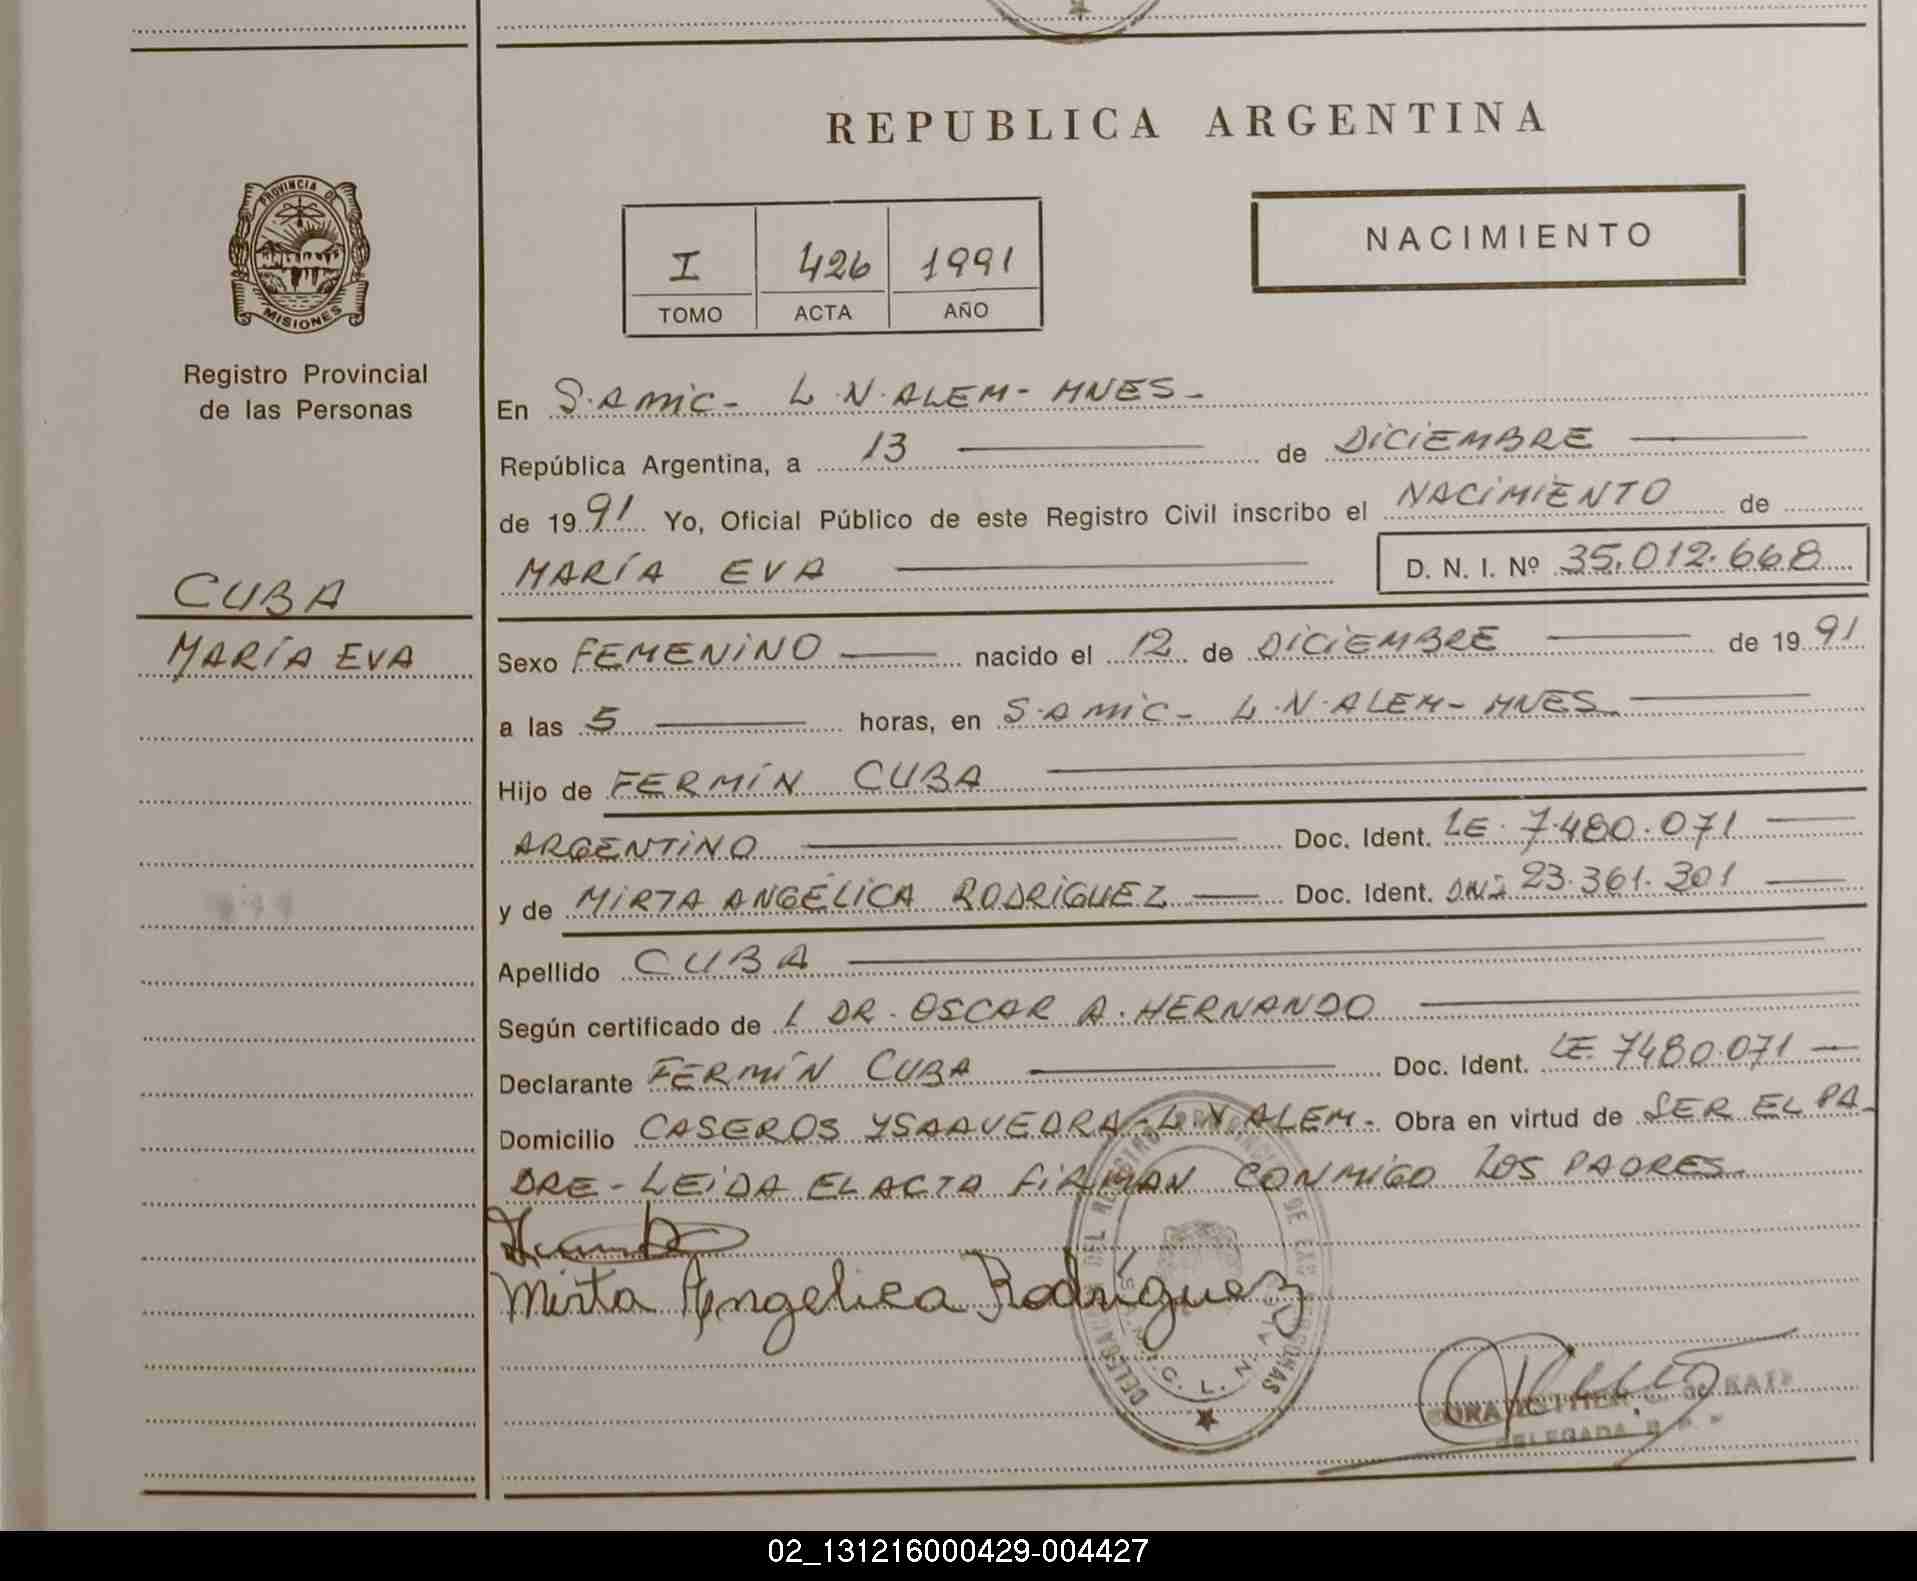 REPUBLICA ARGENTINA
PROVINCIA DE
MISIONES
Registro Provincial
de las Personas
I 426 1991
TOMO ACTA AÑO
NACIMIENTO
En S.AMIC- L.N.ALEM- MNES-
República Argentina, a 13 de DICIEMBRE
de 1991 Yo, Oficial Público de este Registro Civil inscribo el NACIMIENTO de
MARÍA EVA D. N. I. Nº 35.012.668
CUBA
MARÍA EVA
Sexo FEMENINO nacido el 12 de DICIEMBRE de 1991
a las 5 horas, en S.AMIC- L.N.ALEM- MNES
Hijo de FERMÍN CUBA
ARGENTINO Doc. Ident. LE. 7.480.071
y de MIRTA ANGÉLICA RODRÍGUEZ Doc. Ident. DNI 23.361.301
Apellido CUBA
Según certificado de L DR. OSCAR A. HERNANDO
Declarante FERMÍN CUBA Doc. Ident. LE. 7480.071
Domicilio CASEROS Y SAAVEDRA-L.N.ALEM- Obra en virtud de SER EL PA-
DRE-LEIDA EL ACTA FIRMAN CONMIGO LOS PADRES-
Mirta Angelica Rodriguez
DEL REGISTRO PROVINCIAL DE LAS PERSONAS
DELEGADA
02_131216000429-004427